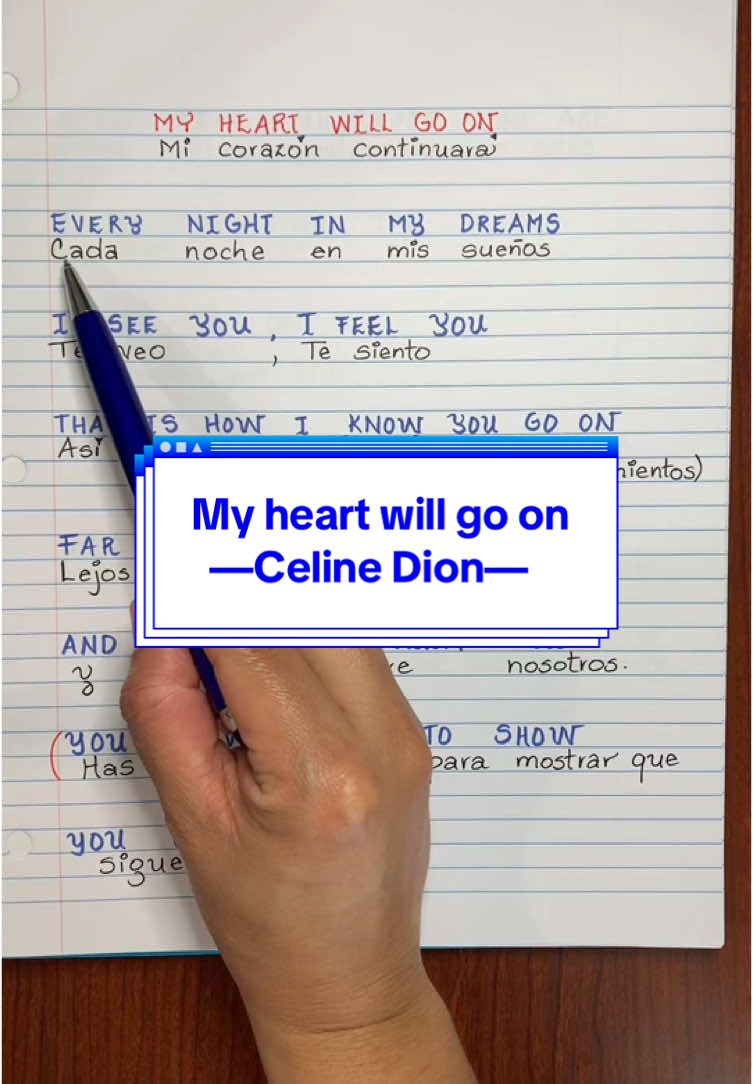 MY HEART WILL GO ON
Mi corazón continuará
EVERY NIGHT IN MY DREAMS
Cada noche en mis sueños
I SEE YOU, I FEEL YOU
Te veo, Te siento
THA IS HOW I KNOW YOU GO ON
Así
mientos)
My heart will go on
—Celine Dion—
FAR
Lejos
AND
y nosotros.
(YOU TO SHOW
Has para mostrar que
YOU
sigue